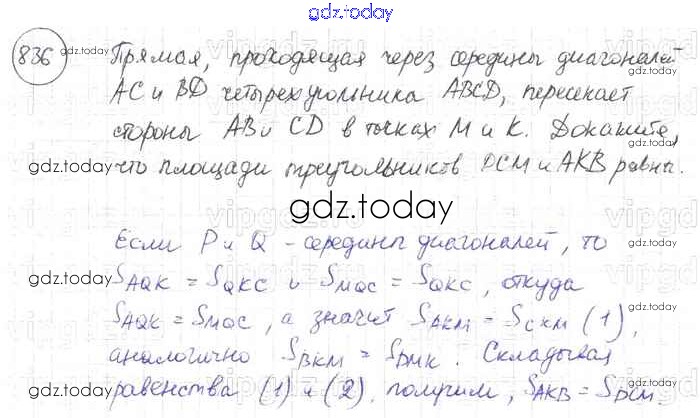 gdz.today
836 Прямая, проходящая через середины диагоналей
АС и BD четырехугольника ABCD, пересекает
стороны АВ и CD в точках М и К. Докажите,
что площади треугольников DCM и AKB равны.
gdz.today
Если P и Q - середины диагоналей, то
S AQK = S QKC и S MQC = S QKC, откуда
S AQK = S MQC, а значит S AKM = S CKM (1),
аналогично S BKM = S DMK. Складывая
равенства (1) и (2), получим, S AKB = S DCM.